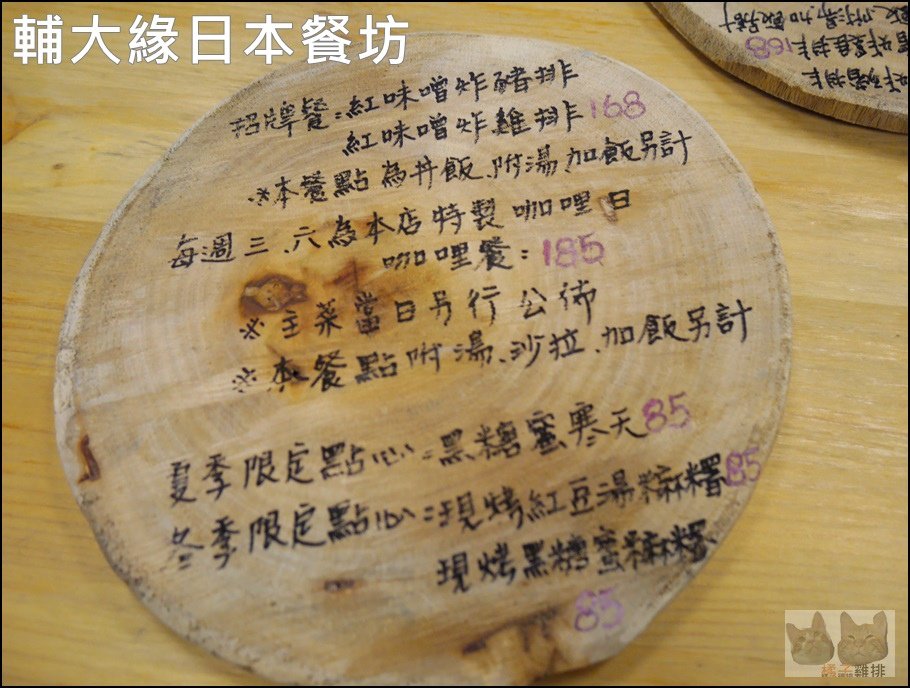 輔大緣日本餐坊
招牌餐:紅味噌炸豬排
紅味噌炸雞排 168
※本餐點為丼飯、附湯、加飯另計
每週三、六為本店特製咖哩日
咖哩餐: 185
※主菜當日另行公佈
※本餐點附湯、沙拉、加飯另計
夏季限定點心:黑糖蜜寒天 85
冬季限定點心:現烤紅豆湯麻糬 85
現烤黑糖蜜麻糬
85
168
橘子雞排